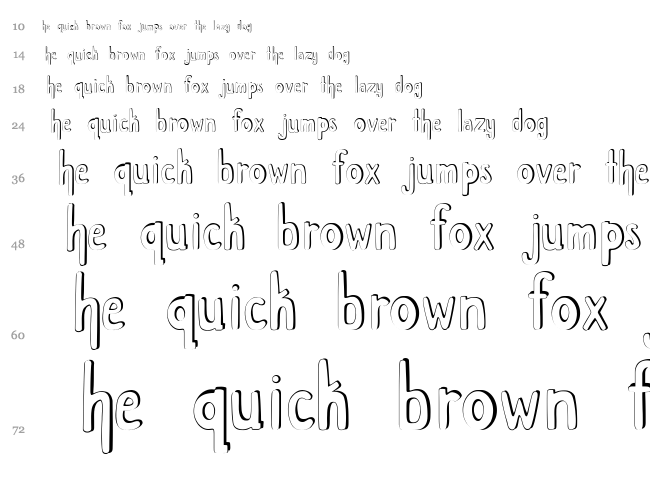 10 he quick brown fox jumps over the lazy dog
14 he quick brown fox jumps over the lazy dog
18 he quick brown fox jumps over the lazy dog
24 he quick brown fox jumps over the lazy dog
36 he quick brown fox jumps over the
48 he quick brown fox jumps
60 he quick brown fox j
72 he quick brown f